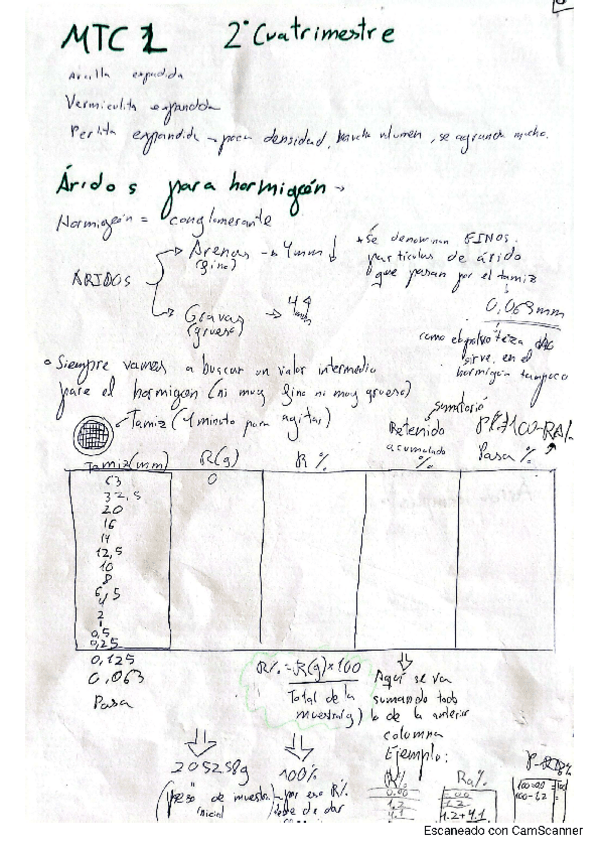 MTC 1 2º Cuatrimestre
Arcilla expandida
Vermiculita expandida
Perlita expandida → poca densidad, volumen, se agranda mucho.
Áridos para hormigón →
Hormigón = conglomerante
→ Arenas → 4mm ↓
(fino)
ÁRIDOS
→ Gravas →
(grueso)
* Se denominan FINOS.
partículas de árido
que pasan por el tamiz
0,063mm
como el polvo tiza
sirve, en el
hormigón tampoco
° Siempre vamos a buscar un valor intermedio
para el hormigón (ni muy fino ni muy grueso)
Tamiz (1 minuto para agitar)
sumatorio
Retenido
acumulado
%
100-RA%
Pasa %
Tamiz(mm) R(g) R %
63 0
32,5
20
16
14
12,5
10
8
6,5
4
2
1
0,5
0,25
0,125
0,063
Pasa
R% = R(g)×100
Total de la
muestra(g)
Aquí se va
sumando todo
lo de la anterior
columna
Ejemplo:
2052,58g
(peso de muestra
inicial
100%
por eso R%
debe de dar
R% Ra%
0.00 0.0
1.2 1.2
4.1 1.2+4.1
Escaneado con CamScanner